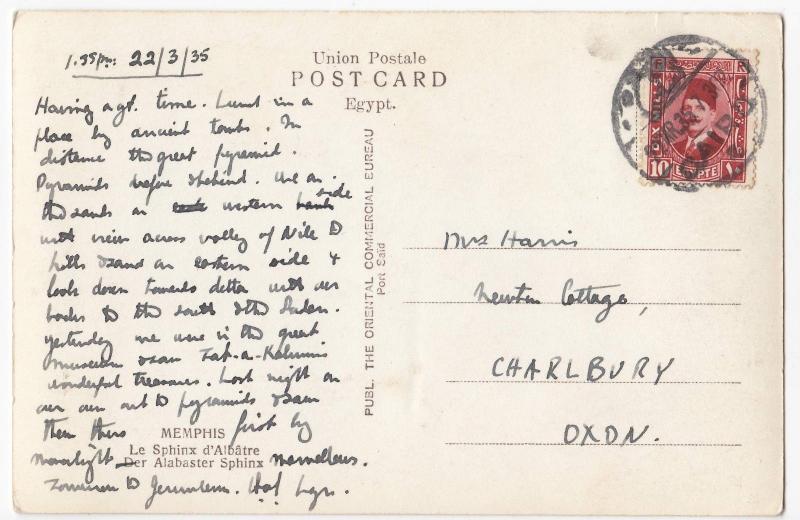 1.35pm. 22/3/35
Having a gt. time. Lunch in a
place by ancient tombs. In
distance the great pyramid.
Pyramids before & behind. We on
the sands on western side
with views across valley of Nile to
hills & sand on eastern side &
look down towards delta with our
backs to the south & the Sudan.
Yesterday we were in the great
museum & saw Tut-a-Kahmin's
wonderful treasures. Last night on
our own out to pyramids & saw
them thus first by
moonlight — marvellous.
Tomorrow to Jerusalem. Hot
Union Postale
POST CARD
Egypt.
PUBL. THE ORIENTAL COMMERCIAL BUREAU
Port Said
MEMPHIS
Le Sphinx d'Albâtre
Der Alabaster Sphinx
DIX MILLS
10 EGYPTE
CAIRO
Mrs Harris
Newtin Cottage,
CHARLBURY
OXON.